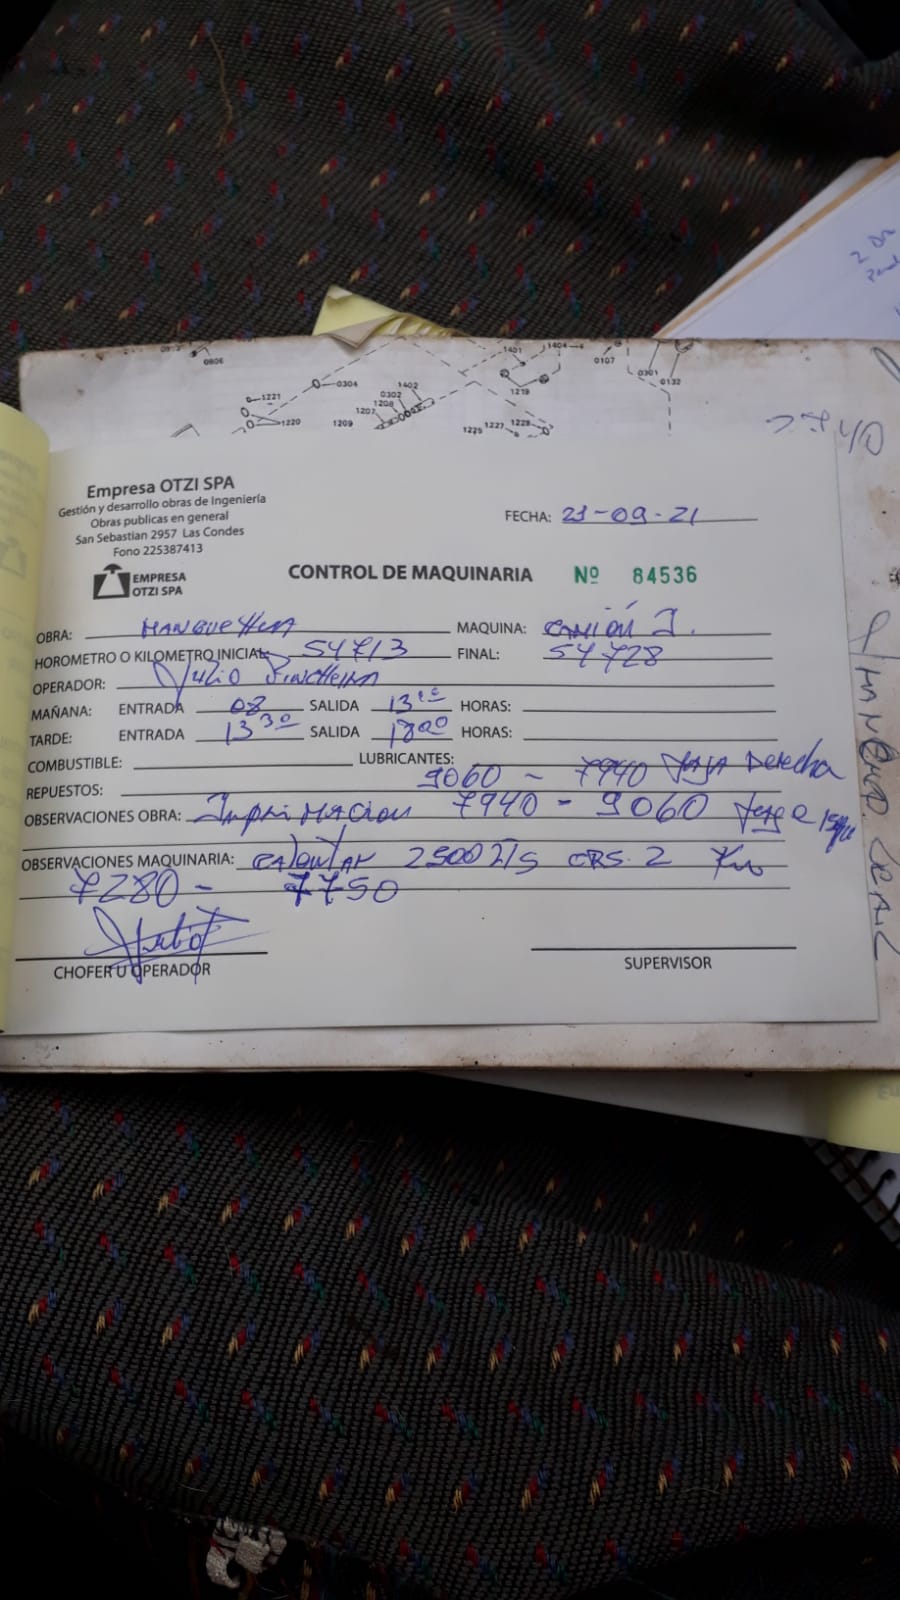 0806
1401
1404
0107
0301
0132
1221
0304
1402
0302
1208
1219
1220
1209
1207
1225
1227
1228
2
Empresa OTZI SPA
Gestión y desarrollo obras de Ingeniería
Obras publicas en general
San Sebastian 2957 Las Condes
Fono 225387413
EMPRESA
OTZI SPA
FECHA: 21-09-21
CONTROL DE MAQUINARIA Nº 84536
OBRA: MAQUINA: CAMIÓN I.
HOROMETRO O KILOMETRO INICIAL: 54713 FINAL: 54728
OPERADOR: Julio Pincheira
MAÑANA: ENTRADA 08 SALIDA 13 HORAS:
TARDE: ENTRADA 13 30 SALIDA 18 00 HORAS:
COMBUSTIBLE: LUBRICANTES:
9060 - 7940 FAJA Derecha
REPUESTOS:
OBSERVACIONES OBRA: Imprimacion 7940 - 9060
OBSERVACIONES MAQUINARIA: CALENTAR 2500 LTS CRS. 2 Km
7280 - 7750
CHOFER U OPERADOR
SUPERVISOR